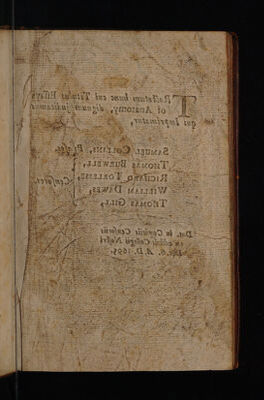 Tractatum hunc cui Titulus Essays
of Anatomy, dignum judicamus
qui Imprimatur,
SAMUEL COLLINS, Præses.
THOMAS BURWELL,
RICHARD TORLESSE,
WILLIAM DAWES,
THOMAS GILL,
Censores.
Dat. in Comitiis Censoriis
in ædibus Collegii Nostri
A. D. 1695.